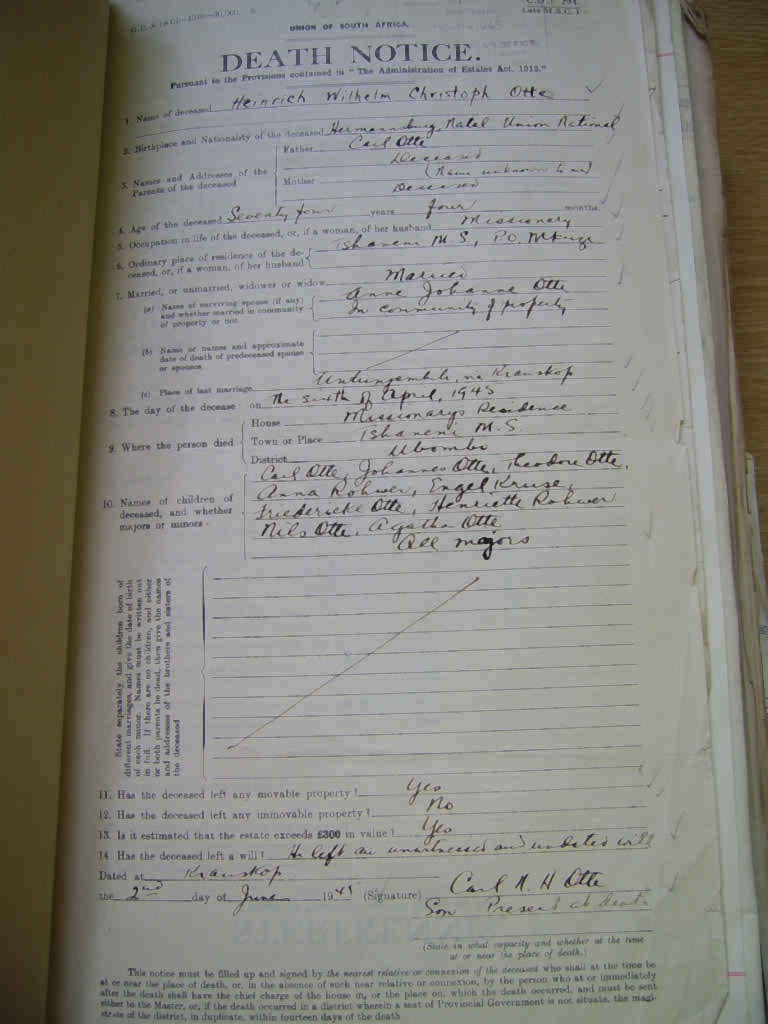 UNION OF SOUTH AFRICA.
DEATH NOTICE.
Pursuant to the Provisions contained in "The Administration of Estates Act, 1913."
1. Name of deceased Heinrich Wilhelm Christoph Otte
2. Birthplace and Nationality of the deceased Hermannsburg, Natal Union National
3. Names and Addresses of the Parents of the deceased
Father Carl Otte
Deceased
Mother (Name unknown to me)
Deceased
4. Age of the deceased Seventy four years four months.
5. Occupation in life of the deceased, or, if a woman, of her husband Missionary
6. Ordinary place of residence of the deceased, or, if a woman, of her husband Ishaneni M.S., P.O. Mkuze
7. Married, or unmarried, widower or widow Married
(a) Name of surviving spouse (if any) and whether married in community of property or not
Anne Johanne Otte
In community of property
(b) Name or names and approximate date of death of predeceased spouse or spouses
(c) Place of last marriage Untunjambili, na Kranskop
8. The day of the decease on The sixth of April, 1945
9. Where the person died
House Missionary's Residence
Town or Place Ishaneni M.S.
District Ubombo
10. Names of children of deceased, and whether majors or minors -
Carl Otte, Johannes Otte, Theodore Otte,
Anna Rohwer, Engel Kruse,
Friedericke Otte, Henriette Rohwer
Nils Otte, Agatha Otte
All majors
State separately the children born of
different marriages, and give the date of birth
of each minor. Names must be written out
in full. If there are no children, and either
or both parents be dead, then give the names
and addresses of the brothers and sisters of
the deceased
11. Has the deceased left any movable property? Yes
12. Has the deceased left any immovable property? No
13. Is it estimated that the estate exceeds £300 in value? Yes
14. Has the deceased left a will? He left an unwitnessed and undated will
Dated at Kranskop
the 2nd day of June 194 (Signature) Carl H. H Otte
Son Present at death
(State in what capacity and whether at the time
at or near the place of death.)
This notice must be filled up and signed by the nearest relative or connexion of the deceased who shall at the time be
at or near the place of death, or, in the absence of such near relative or connexion, by the person who at or immediately
after the death shall have the chief charge of the house in, or the place on, which the death occurred, and must be sent
either to the Master, or, if the death occurred in a district wherein a seat of Provincial Government is not situate, the magi-
strate of the district, in duplicate, within fourteen days of the death